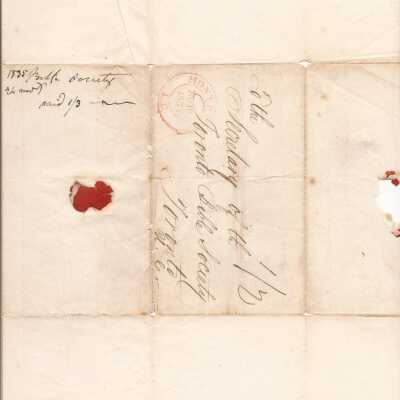 1835 Bible Society
24 Novr
paid 1/3
To the
Secretary of the
Toronto Bible Society
Toronto
U. C.
1/3
MONT
NOV